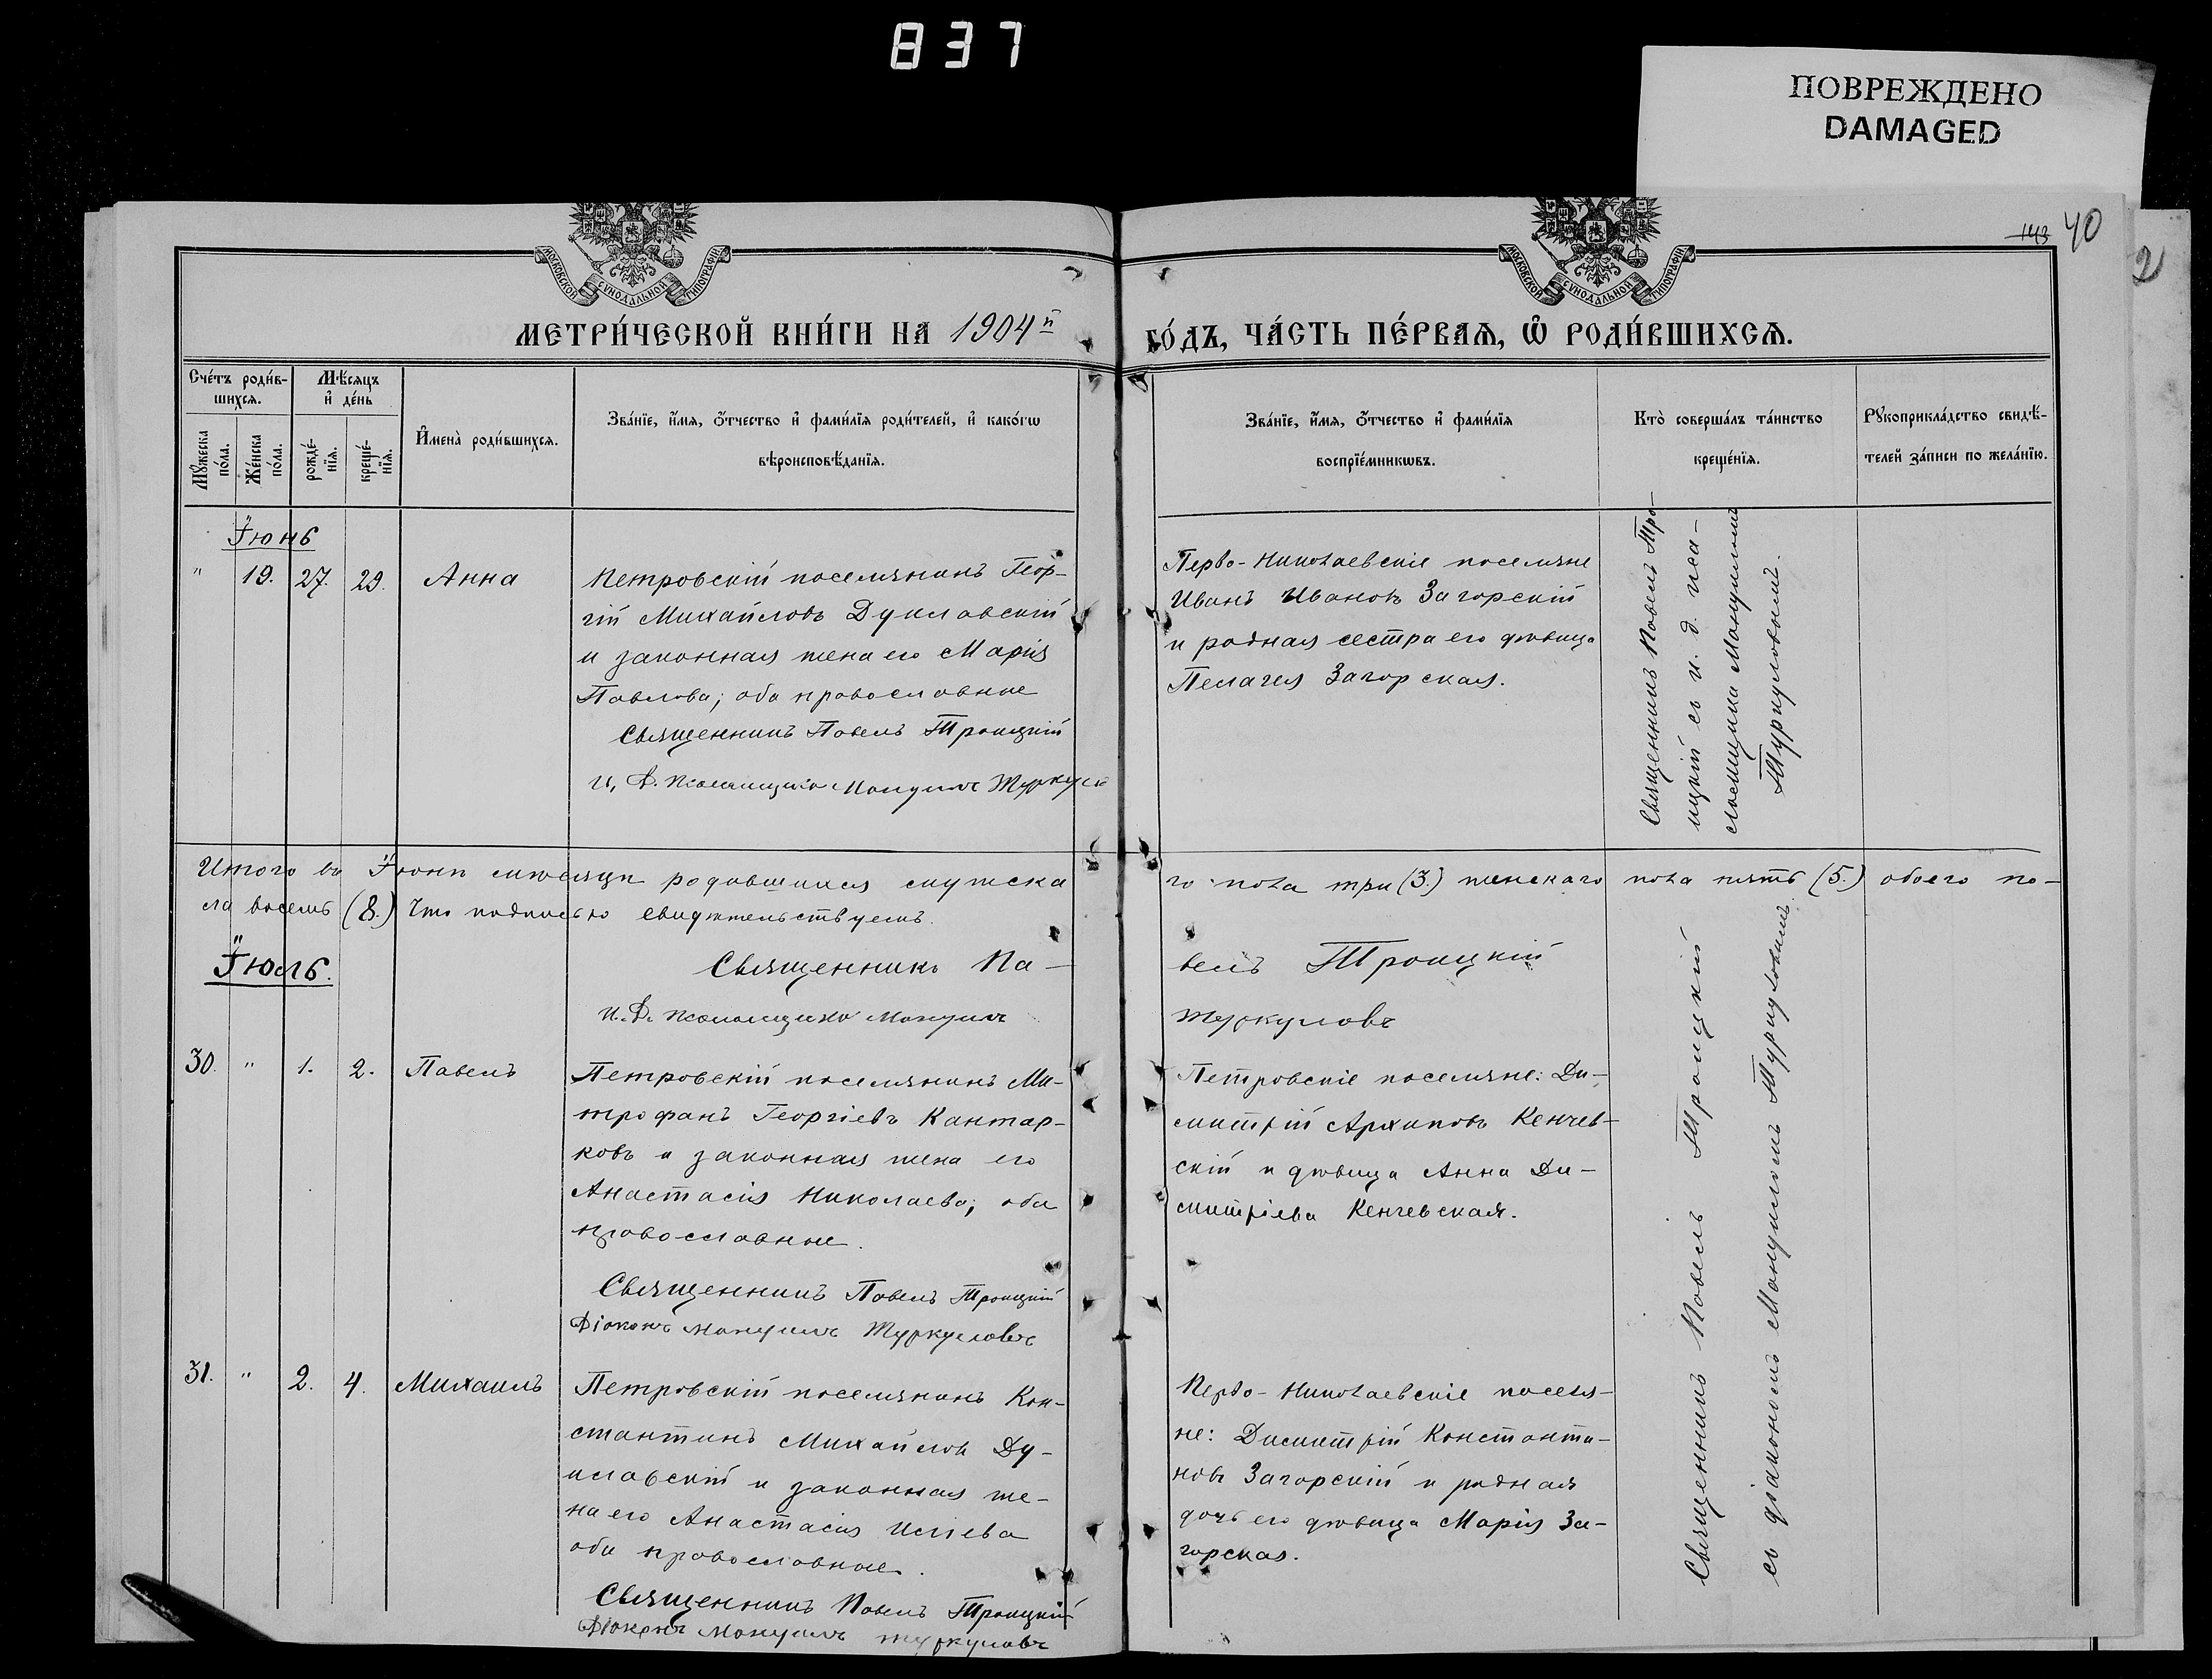 837
ПОВРЕЖДЕНО
DAMAGED
143 40
2
МОСКОВСКОЙ СУНОДАЛЬНОЙ ТИПОГРАФІИ
МОСКОВСКОЙ СУНОДАЛЬНОЙ ТИПОГРАФІИ
МЕТРИ́ЧЕСКОЙ КНИ́ГИ НА 1904й
ГО́ДЪ, ЧА́СТЬ ПЕ́РВАѦ, Ѡ҆ РОДИ́ВШИХСѦ.
Сче́тъ роди́в-
шихсѧ.
Мѣ́сѧцъ
и҆ де́нь
Мꙋ́жеска
по́ла.
Же́нска
по́ла.
рожде́-
нїѧ.
креще́-
нїѧ.
И҆мена̀ роди́вшихсѧ.
Зва́нїе, и҆́мѧ, ѻ҆́тчество и҆ фами́лїѧ роди́телей, и҆ како́гѡ
вѣроисповѣ́данїѧ.
Зва́нїе, и҆́мѧ, ѻ҆́тчество и҆ фами́лїѧ
воспрїе́мникѡвъ.
Кто̀ соверша́лъ та́инство
креще́нїѧ.
Рꙋкоприкла́дство свидѣ́-
телей за́писи по жела́нїю.
Іюнь
" 19. 27. 29. Анна
Петровскій поселянинъ Геор-
гій Михайловъ Дукловскій
и законная жена его Марія
Павлова; оба православные
Священникъ Павелъ Троицкій
И, Д. Псаломщика Мануилъ Туркул
Перво-Николаевскіе поселяне
Иванъ Ивановъ Загорскій
и родная сестра его дѣвица
Пелагея Загорская.
Священникъ Павелъ Тро-
ицкій съ и. д. пса-
ломщика Мануиломъ
Туркуловымъ.
Итого въ Іюнѣ мѣсяцѣ родившихся мужска
го пола три (3.) женскаго пола пять (5.) обоего по-
ла восемь (8.) Что подписью свидѣтельствуемъ.
Іюль.
Священникъ Па-
велъ Троицкій
И. Д. Псаломщика Мануилъ
Туркуловъ
30. " 1. 2. Павелъ
Петровскій поселянинъ Ми-
трофанъ Георгіевъ Кантар-
ковъ и законная жена его
Анастасія Николаева; оба
православные.
Священникъ Павелъ Троицкій
Діаконъ Мануилъ Туркуловъ
Петровскіе поселяне: Ди-
митрій Архиповъ Кенчев-
скій и дѣвица Анна Ди-
митріева Кенчевская.
Священникъ Павелъ Троицкій
съ діакономъ Мануиломъ Туркуловымъ.
31. " 2. 4. Михаилъ
Петровскій поселянинъ Кон-
стантинъ Михайловъ Ду-
кловскій и законная же-
на его Анастасія
оба православные.
Священникъ Павелъ Троицкій
Діаконъ Мануилъ Туркуловъ
Перво-Николаевскіе поселя-
не: Димитрій Константи-
новъ Загорскій и родная
дочь его дѣвица Марія За-
горская.